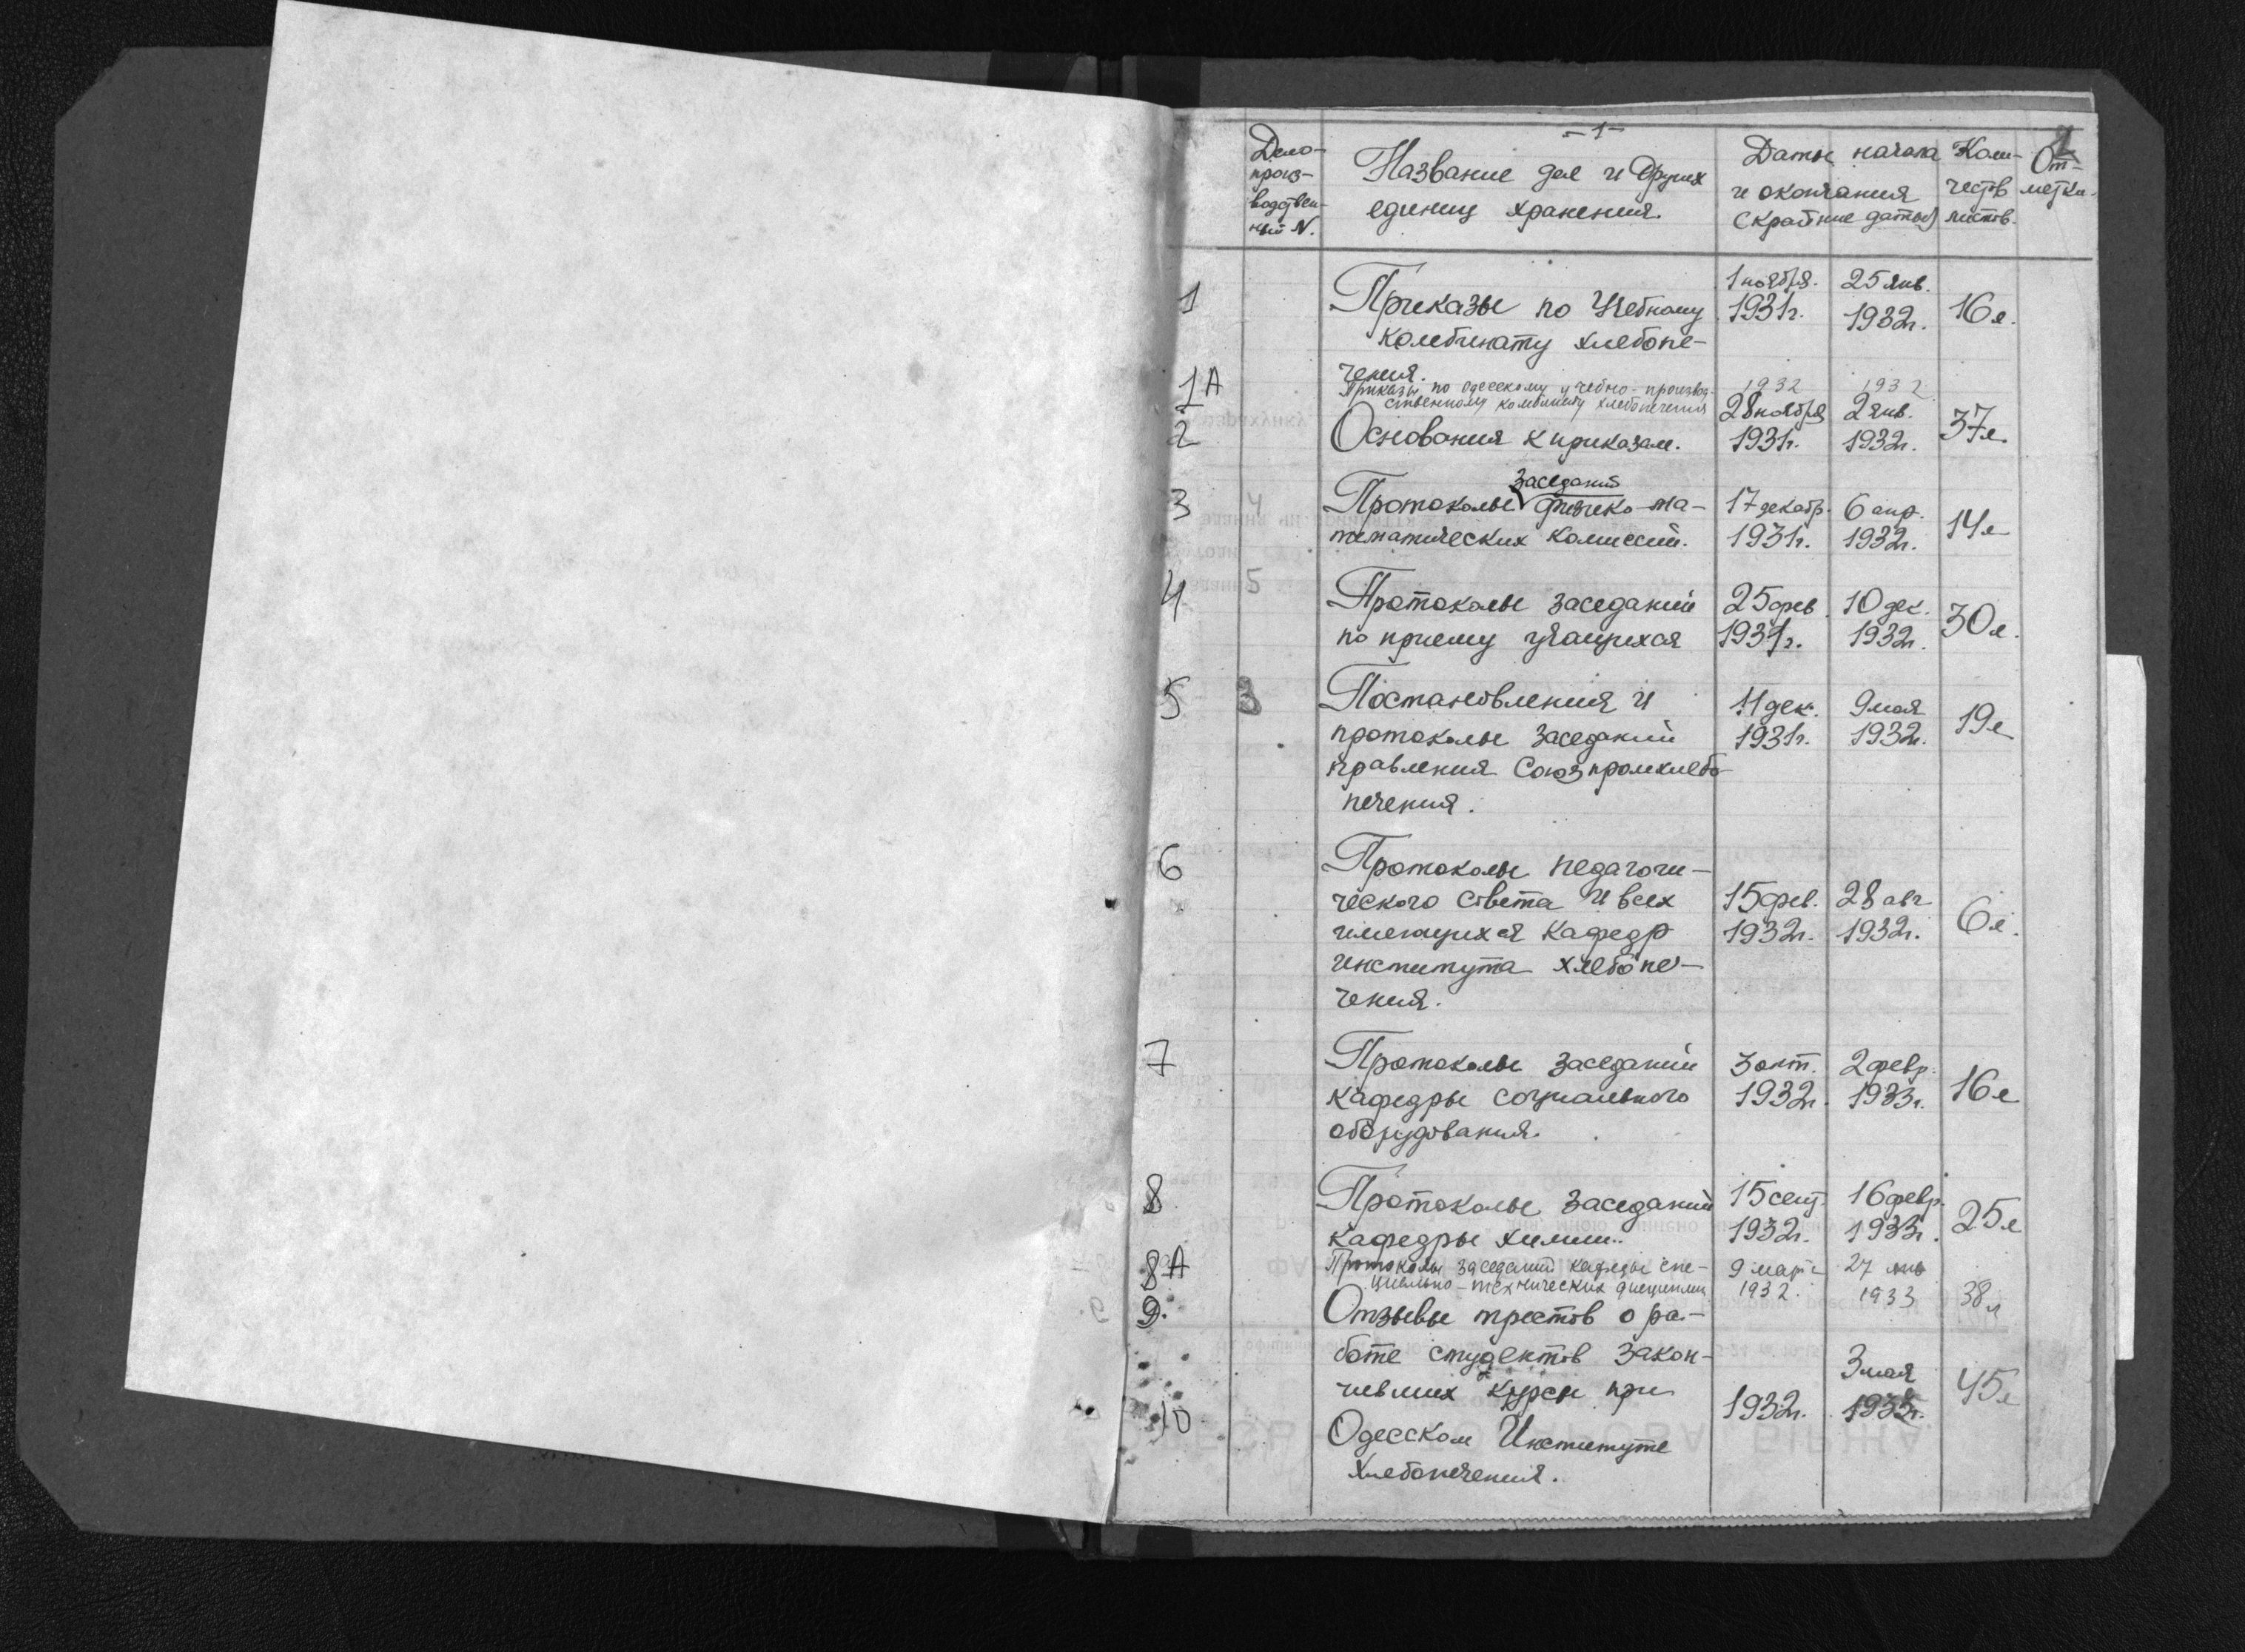 – 1 –
2
Дело-
произ-
водствен-
ный N.
Название дел и других
единиц хранения.
Даты начала
и окончания
(крайние даты)
Коли-
честв
листов.
От-
метки.
1
Приказы по Учебному
комбинату хлебопе-
чения.
1 ноября.
1931г.
25 янв.
1932г.
16 л.
1А
Приказы по одесскому учебно-производ-
ственному комбинату хлебопечения
1932
1932
2
Основания к приказам.
28 ноября
1931г.
2 янв.
1932г.
37 л.
3
4
заседаний
Протоколы физико-ма-
тематических комиссий.
17 декабр.
1931г.
6 апр.
1932г.
14 л
4
5
Протоколы заседаний
по приему учащихся
25 фев.
1931г.
10 дек.
1932г.
30 л.
5
3
Постановления и
протоколы заседаний
правления Союзпромхлебо-
печения.
11 дек.
1931г.
9 мая
1932г.
19 л
6
Протоколы педагоги-
ческого совета и всех
имеющихся кафедр
института хлебопе-
чения.
15 фев.
1932г.
28 авг
1932г.
6 л.
7
Протоколы заседаний
кафедры социального
оборудования.
3 окт.
1932г.
2 февр.
1933г.
16 л
8
Протоколы заседаний
кафедры химии.
15 сент.
1932г.
16 февр.
1933г.
25 л
8А
Протоколы заседаний кафедры спе-
циально-технических дисциплин
9 марта
1932.
27 янв
1933
38 л
9.
10
Отзывы трестов о ра-
боте студентов закон-
чивших курсы при
Одесском Институте
Хлебопечения.
1932г.
3 мая
45 л